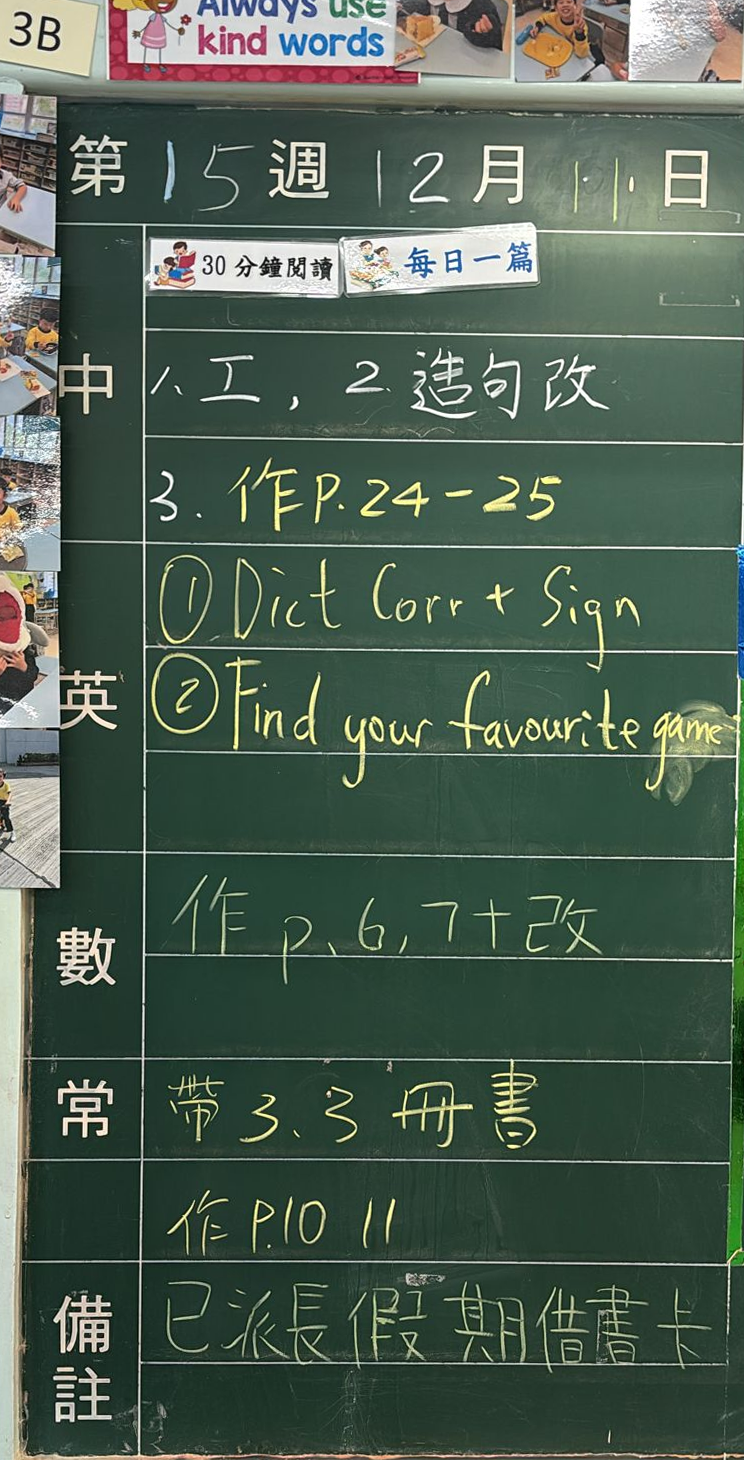 3B
Always use
kind words
第 15 週 12 月 11 日
30分鐘閱讀 每日一篇
中
1、工，2. 造句改
3. 作P.24-25
英
① Dict Corr + Sign
② Find your favourite game
數
作 p、6,7+改
常
帶 3、3 冊書
作 P.10 11
備註
已派長假期借書卡